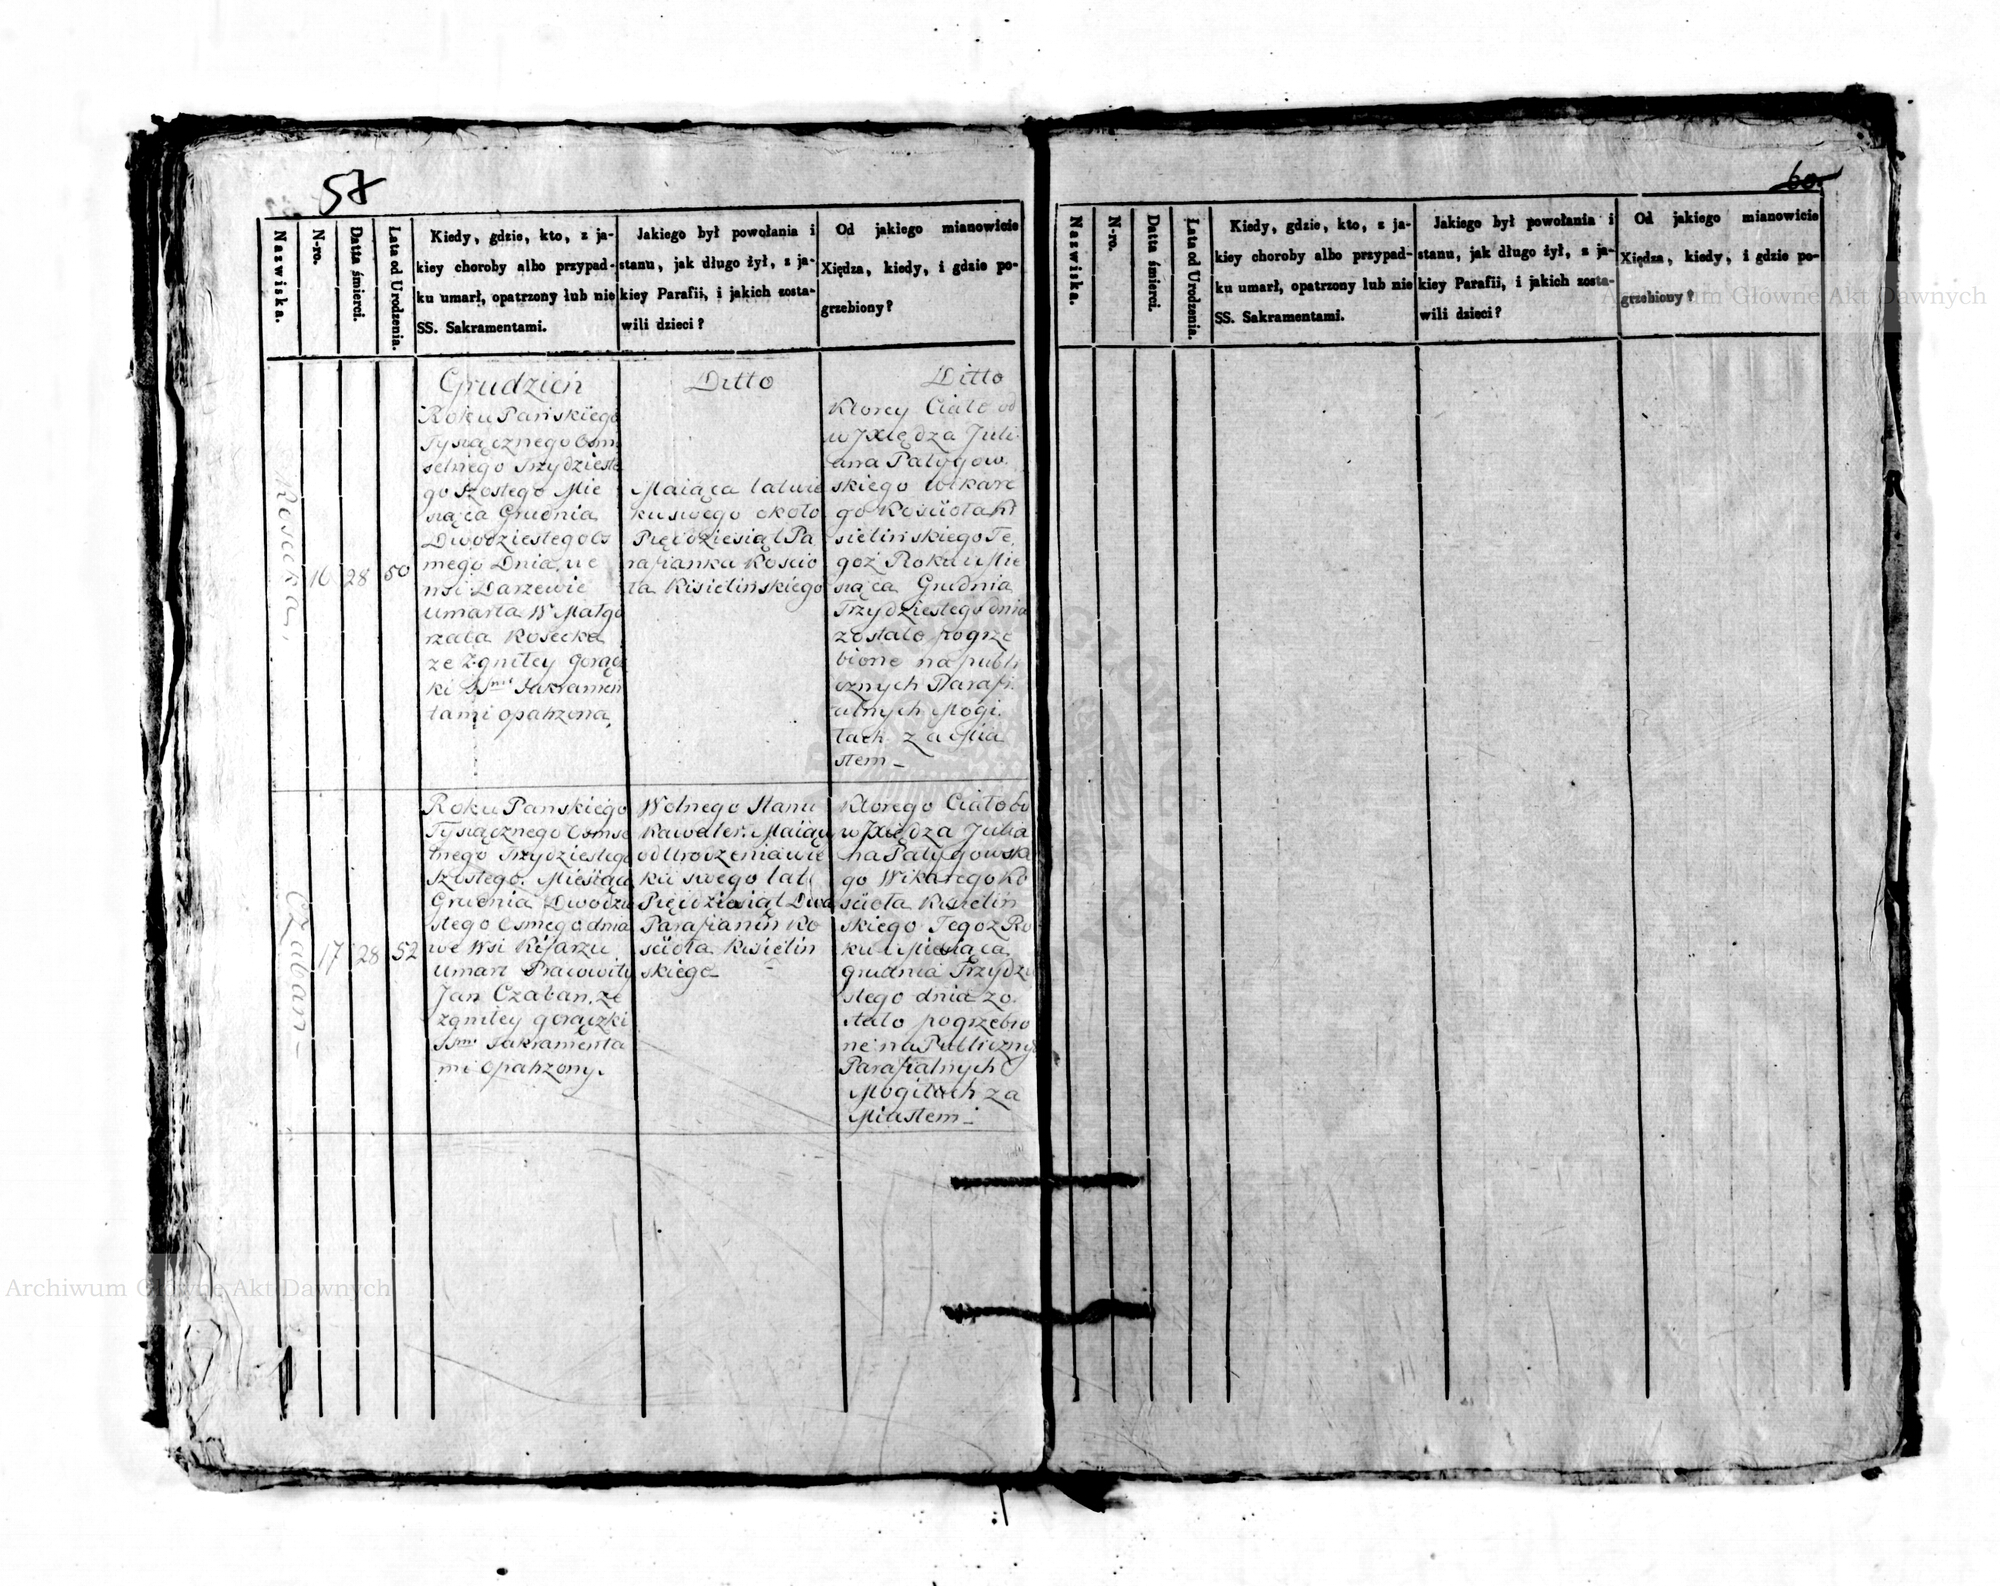 57
Nazwiska.
N-ro.
Datta śmierci.
Lata od Urodzenia.
Kiedy, gdzie, kto, z ja-
kiey choroby albo przypad-
ku umarł, opatrzony lub nie
SS. Sakramentami.
Jakiego był powołania i
stanu, jak długo żył, z ja-
kiey Parafii, i jakich zosta-
wili dzieci?
Od jakiego mianowicie
Xiędza, kiedy, i gdzie po-
grzebiony?
Kosecka,
16
28
50
Grudzień
Roku Pańskiego
Tysiącznego Osm
setnego Trzydzieste
go Szostego Mie
siąca Grudnia
Dwodziestego Os
mego Dnia, we
wsi Darzewie
umarła W Małgo
rzata Kosecka
ze zgniłey gorącz
ki SSmi Sakramen
tami opatrzona,
Ditto
Maiąca lat wie
ku swego około
Pięćdziesiąt Pa
rafianka Koscio
ła Kisielińskiego
Ditto
Ktorey Ciało od
w JXiędza Juli
ana Patygow
skiego Wikare
go Kościoła Ki
sielińskiego Te,
goż Roku i Mie
siąca Grudnia
Trzydziestego dnia
zostało pogrze
bione na publi
cznych Parafi
alnych Mogi.
łach za Mia
stem_
Czaban-
17
28
52
Roku Panskiego
Tysiącznego Osmse
tnego Trzydziestego
Szostego. Miesiąca
Grudnia Dwodzie
stego Osmego dnia
we Wsi Kisarzu
umarł Pracowity
Jan Czaban, ze
zgniłey gorączki
SSmi Sakramenta
mi opatrzony.
Wolnego Stanu
Kawaler. Maiąc
od Urodzenia wie
ku swego lat
Pięćdziesiąt Dwa
Parafianin Ko
scioła Kisielin
skiego
Ktorego Ciało od
w JXiędza Julia
na Patygowski
go Wikarego Ko
scioła Kisielin
skiego Tegoż Ro
ku i Miesiąca
grudnia Trzydzie
stego dnia zo
stało pogrzebio
ne na Publicznych
Parafialnych
Mogiłach za
Miastem_
60
Nazwiska.
N-ro.
Datta śmierci.
Lata od Urodzenia.
Kiedy, gdzie, kto, z ja-
kiey choroby albo przypad-
ku umarł, opatrzony lub nie
SS. Sakramentami.
Jakiego był powołania i
stanu, jak długo żył, z ja-
kiey Parafii, i jakich zosta-
wili dzieci?
Od jakiego mianowicie
Xiędza, kiedy, i gdzie po-
grzebiony?
Archiwum Główne Akt Dawnych
Archiwum Główne Akt Dawnych